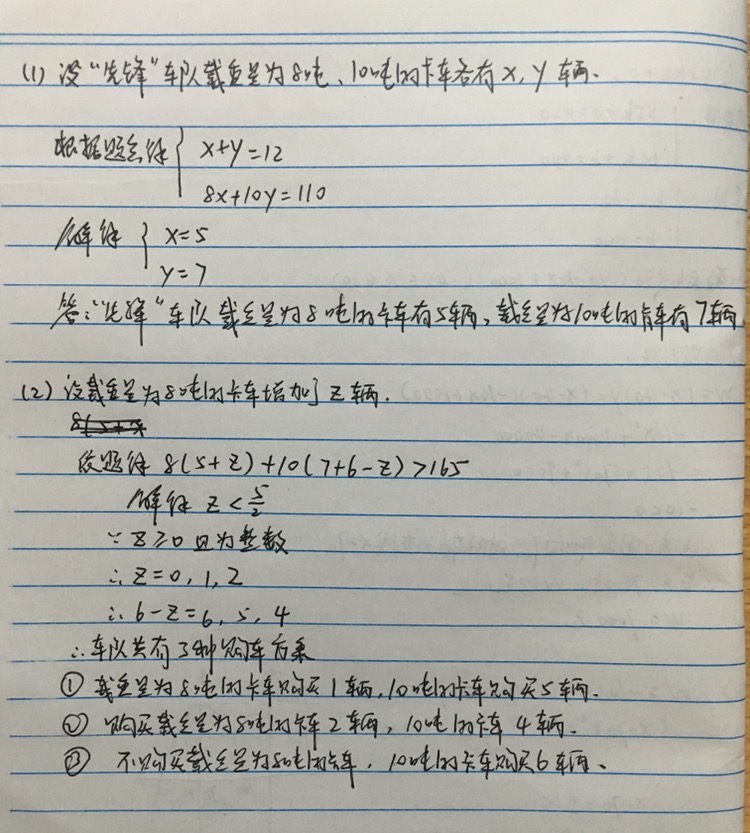 (1) 设"先锋"车队载重量为8吨、10吨的卡车各有x,y辆.
根据题意得 { x+y=12
8x+10y=110
解得 { x=5
y=7
答:"先锋"车队载重量为8吨的卡车有5辆,载重量为10吨的卡车有7辆
(2) 设载重量为8吨的卡车增加了z辆.
依题得 8(5+z)+10(7+6-z)>165
解得 z<5/2
∵z≥0且为整数
∴z=0,1,2
∴6-z=6,5,4
∴车队共有3种购车方案
① 载重量为8吨的卡车购买1辆,10吨的卡车购买5辆.
② 购买载重量为8吨的卡车2辆,10吨的卡车4辆.
③ 不购买载重量为8吨的卡车,10吨的卡车购买6辆.